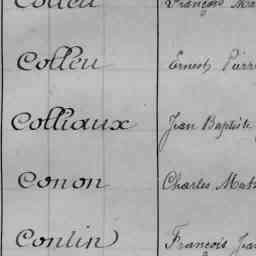 Colleu François
Colleu Ernest Pierre
Colliaux Jean Baptiste
Conon Charles
Contin François Jean